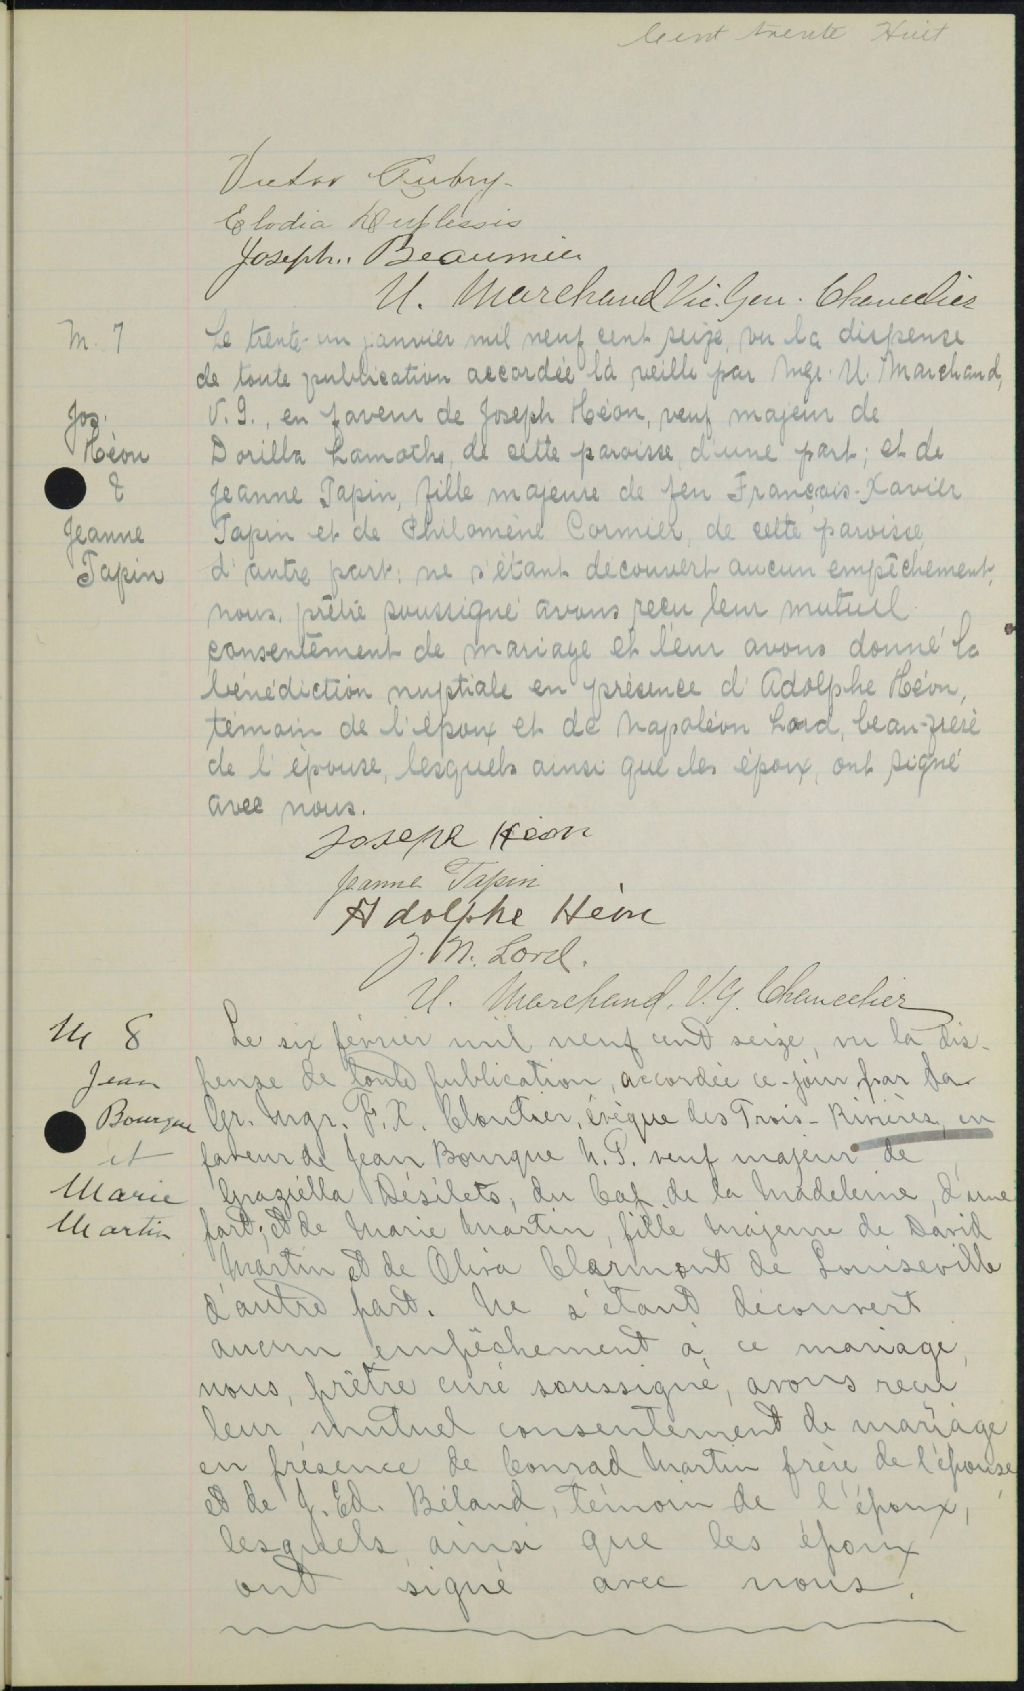 Cent trente Huit
Victor Aubry.
Elodia Duplessis
Joseph.. Beaumier
U. Marchand Vic. Gen. Chancelier
M. 7
Jos.
Héon
&
Jeanne
Papin
Le trente-un janvier mil neuf cent seize, vu la dispense
de toute publication accordée la veille par Mgr. U. Marchand,
V. G., en faveur de Joseph Héon, veuf majeur de
Dorilla Lamothe, de cette paroisse, d'une part; et de
Jeanne Papin, fille majeure de feu François-Xavier
Papin et de Philomène Cormier, de cette paroisse,
d'autre part: ne s'étant découvert aucun empêchement,
nous, prêtre soussigné avons reçu leur mutuel
consentement de mariage et leur avons donné la
bénédiction nuptiale en présence d'Adolphe Héon,
témoin de l'époux et de Napoléon Lord, beau-frère
de l'épouse, lesquels ainsi que les époux, ont signé
avec nous.
Joseph Héon
Jeanne Papin
Adolphe Héon
J. N. Lord.
U. Marchand, V. G. Chancelier
M 8
Jean
Bourque
et
Marie
Martin
Le six février mil neuf cent seize, vu la dis-
pense de toute publication, accordée ce jour par Sa
Gr. Mgr. F. X. Cloutier, évêque des Trois-Rivières, en
faveur de Jean Bourque N. P. veuf majeur de
Graziella Désilets, du Cap de la Madeleine, d'une
part; et de Marie Martin, fille majeure de David
Martin et de Oliva Clermont de Louiseville
d'autre part. Ne s'étant découvert
aucun empêchement à ce mariage,
nous, prêtre curé soussigné, avons reçu
leur mutuel consentement de mariage
en présence de Conrad Martin frère de l'épouse,
et de J. Ed. Béland, témoin de l'époux,
lesquels ainsi que les époux
ont signé avec nous.